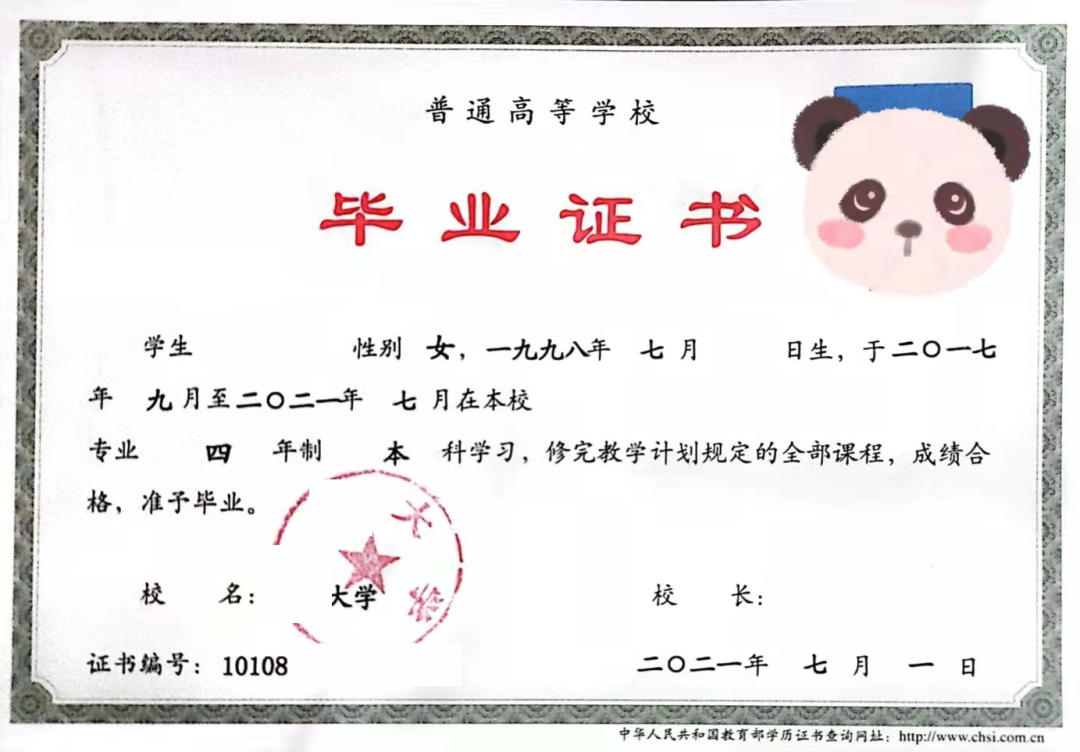 普通高等学校
毕业证书
学生 性别 女，一九九八年 七 月 日生，于二〇一七
年 九 月至二〇二一年 七 月在本校
专业 四 年制 本 科学习，修完教学计划规定的全部课程，成绩合
格，准予毕业。
大学
校 名： 大学 校 长：
证书编号：10108 二〇二一年 七 月 一 日
中华人民共和国教育部学历证书查询网址：http://www.chsi.com.cn